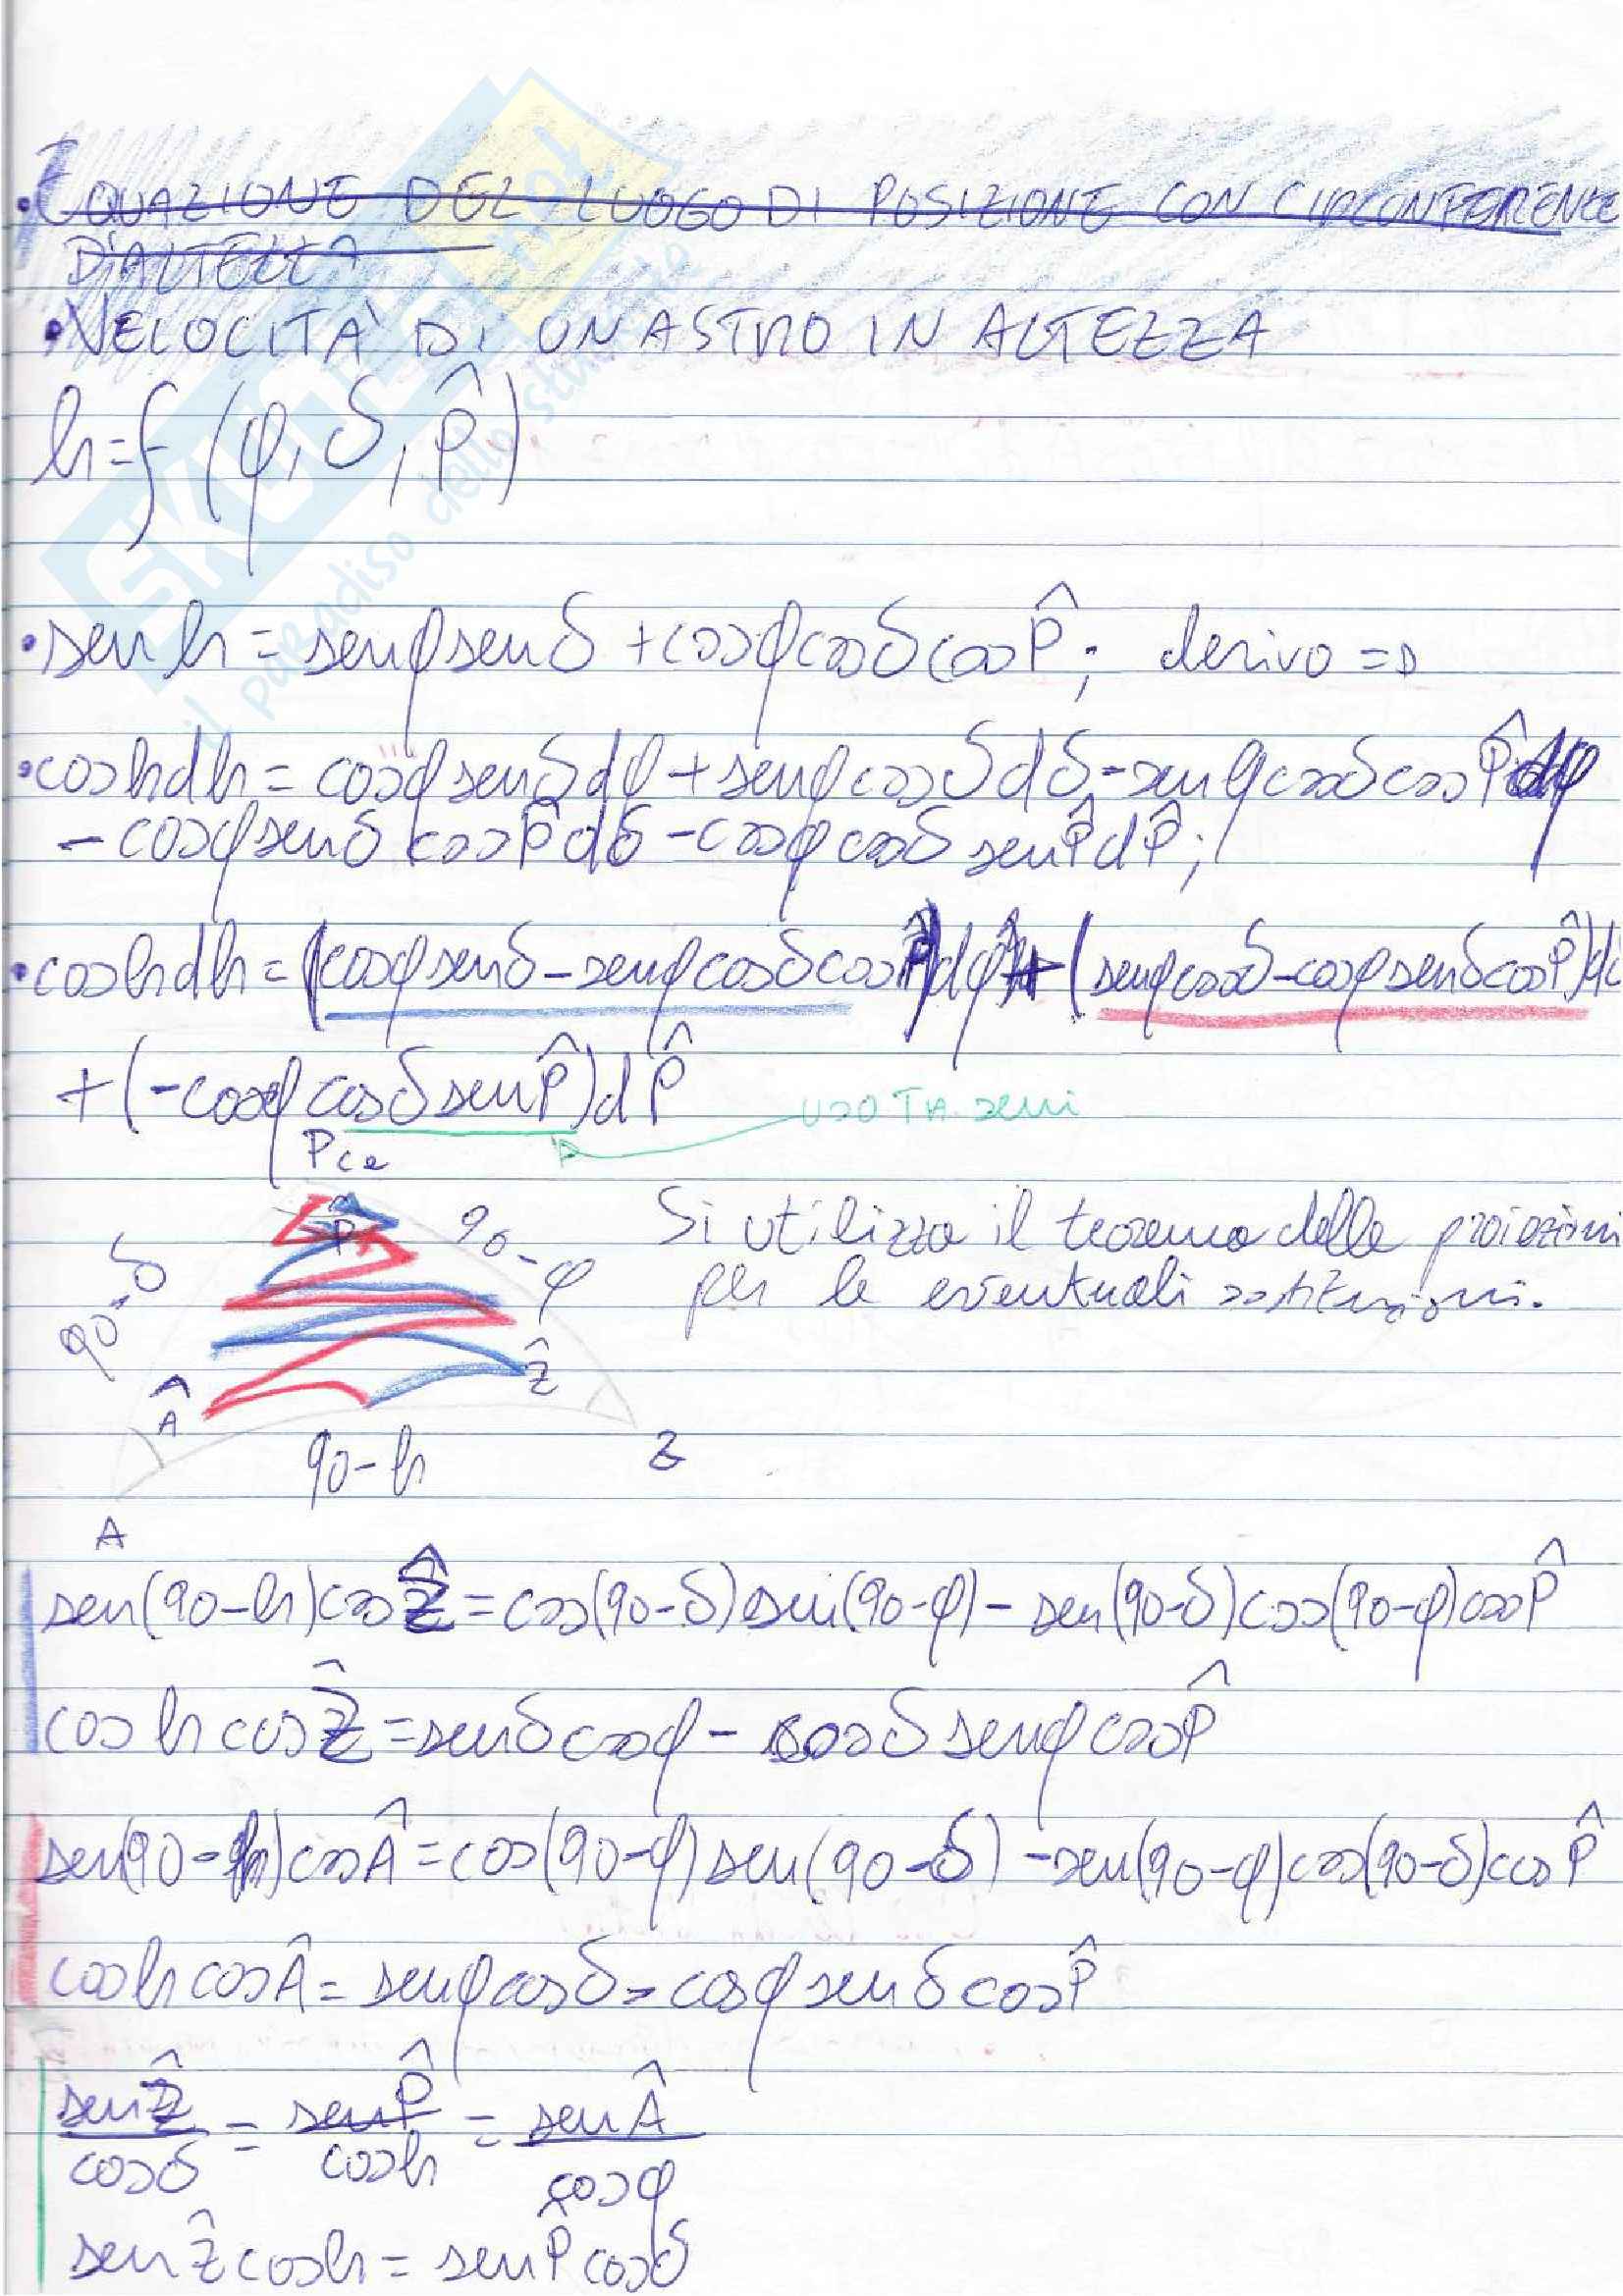 • EQUAZIONE DEL LUOGO DI POSIZIONE CON CIRCONFERENZE
D'ALTEZZA
• VELOCITÀ DI UN ASTRO IN ALTEZZA
h = f (φ, δ, P̂)
• sen h = senφ senδ + cosφ cosδ cos P̂; derivo =>
• cos h dh = cosφ senδ dφ + senφ cosδ dδ - senφ cosδ cos P̂ dφ
- cosφ senδ cos P̂ dδ - cosφ cosδ sen P̂ dP̂;
• cos h dh = (cosφ senδ - senφ cosδ cos P̂) dφ + (senφ cosδ - cosφ senδ cos P̂) d
+ (-cosφ cosδ sen P̂) dP̂
uso TH. seni
Pce
P̂
90-δ
90-φ
Si utilizza il teorema delle proiezioni
per le eventuali sostituzioni.
Â
Ẑ
90-h
Z
A
sen(90-h) cos Ẑ = cos(90-δ) sen(90-φ) - sen(90-δ) cos(90-φ) cos P̂
cos h cos Ẑ = senδ cosφ - cosδ senφ cos P̂
sen(90-h) cos Â = cos(90-φ) sen(90-δ) - sen(90-φ) cos(90-δ) cos P̂
cos h cos Â = senφ cosδ - cosφ senδ cos P̂
sen Ẑ / cosδ = sen P̂ / cos h = sen Â / cosφ
sen Ẑ cos h = sen P̂ cosδ
SKUOLA.net
il paradiso dello studente